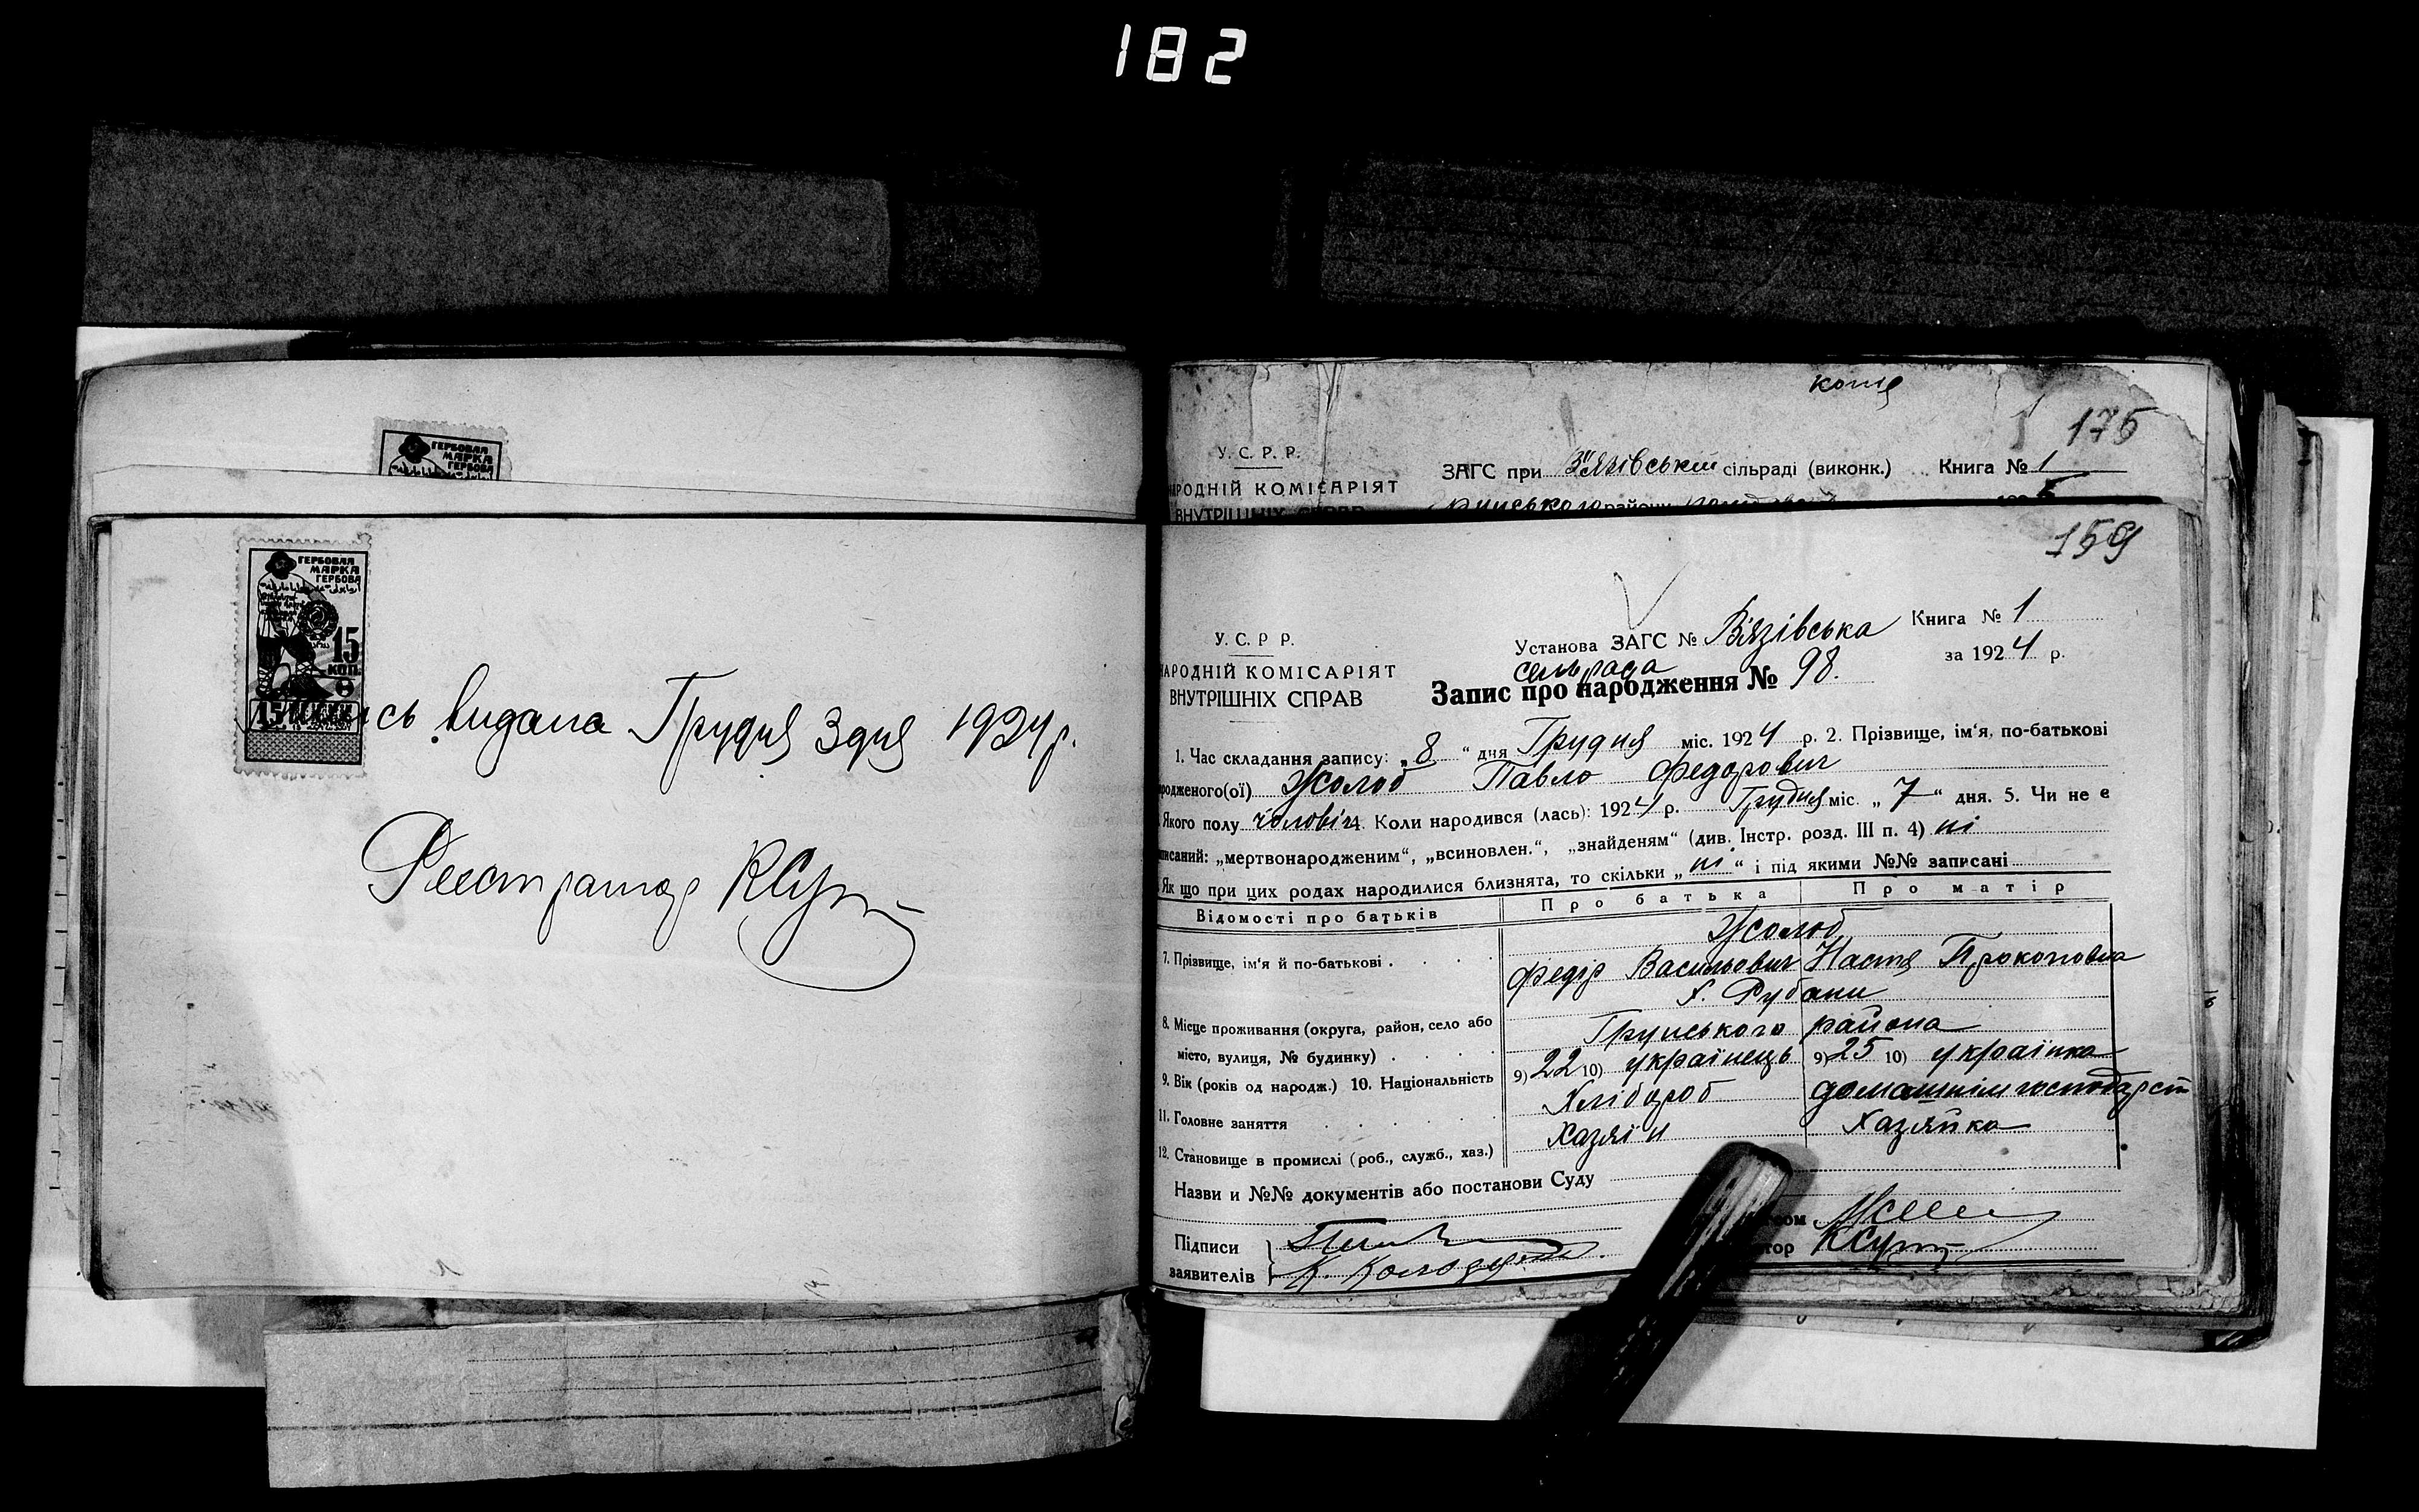 182
ГЕРБОВАЯ
МАРКА
ГЕРБОВА
ГЕРБОВАЯ
МАРКА
ГЕРБОВА
15
КОП.
15
сь видана Грудня 3 дня 1924 р.
Реєстратор КСуп
копія
175
У. С. Р. Р.
НАРОДНІЙ КОМІСАРІЯТ
ВНУТРІШНІХ СПРАВ
ЗАГС при В'язівській сільраді (виконк.) Книга № 1
159
У. С. Р Р.
НАРОДНІЙ КОМІСАРІЯТ
ВНУТРІШНІХ СПРАВ
Установа ЗАГС № В'язівська Книга № 1
сельрада за 1924 р.
Запис про народження № 98.
1. Час складання запису: „8“ дня Грудня міс. 1924 р. 2. Прізвище, ім'я, по-батькові
родженого(ої) Жолоб Павло Федорович
Якого полу чоловіч 4. Коли народився (лась): 1924 р. Грудня міс. „7“ дня. 5. Чи не є
писаний: „мертвонародженим“, „всиновлен.“, „знайденям“ (див. Інстр. розд. III п. 4) ні
Як що при цих родах народилися близнята, то скільки „ні“ і під якими №№ записані
Відомості про батьків Про батька Про матір
Жолоб
7. Прізвище, ім'я й по-батькові . . . . Федір Васильович Настя Прокоповна
Х. Рубани
8. Місце проживання (округа, район, село або
місто, вулиця, № будинку) . . . . Грунського района
9. Вік (років од народж.) 10. Національність 9) 22 10) українець 9) 25 10) українка
11. Головне заняття . . . . . Хлібороб домашнім господарст
12. Становище в промислі (роб., служб., хаз.) Хазяїн Хазяйка
Назви и №№ документів або постанови Суду
Підписи
заявителів К. Колод
КСуп